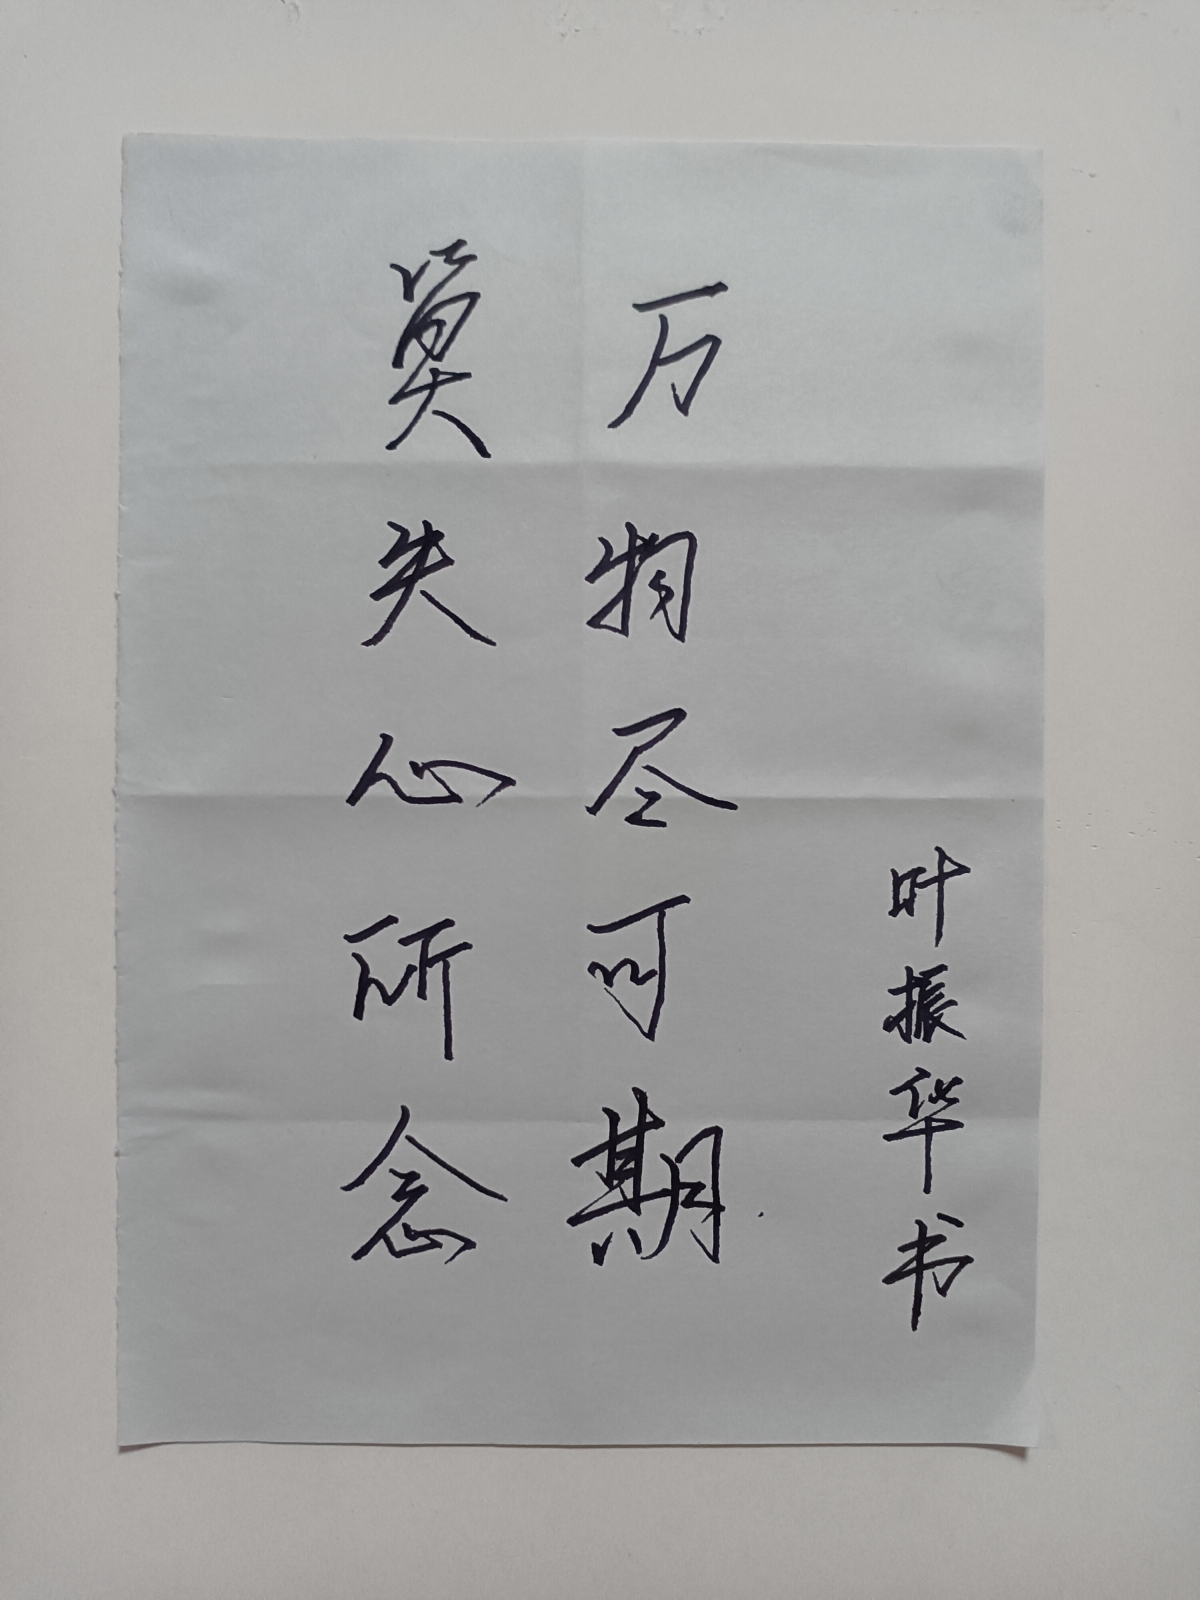 莫失心所念
万物尽可期
叶振华书